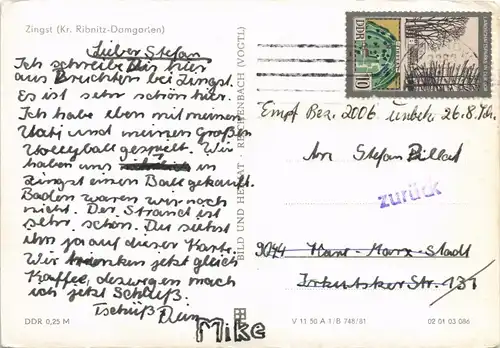 Zingst (Kr. Ribnitz-Damgarten)
Lieber Stefan
Ich schreibe Dir hier
aus Bresewitz bei Zingst.
Es ist sehr schön hier.
Ich habe eben mit meinem
Vati und meinen Großen
Volleyball gespielt. Wir
haben uns in
Zingst einen Ball gekauft.
Baden waren wir noch
nicht. Der Strand ist
sehr schön. Du siehst
ihn ja auf dieser Karte.
Wir trinken jetzt gleich
Kaffee, deswegen mach
ich jetzt Schluß.
Tschüß Dein
Mike
DDR 0,25 M
BILD UND HEIMAT · REICHENBACH (VOGTL)
DDR
10
Empf Bez. 2006 unbek 26.8.
An Stefan Billat
zurück
9044 Karl-Marx-Stadt
Irkutsker Str. 131
V 11 50 A 1/B 748/81
02 01 03 086